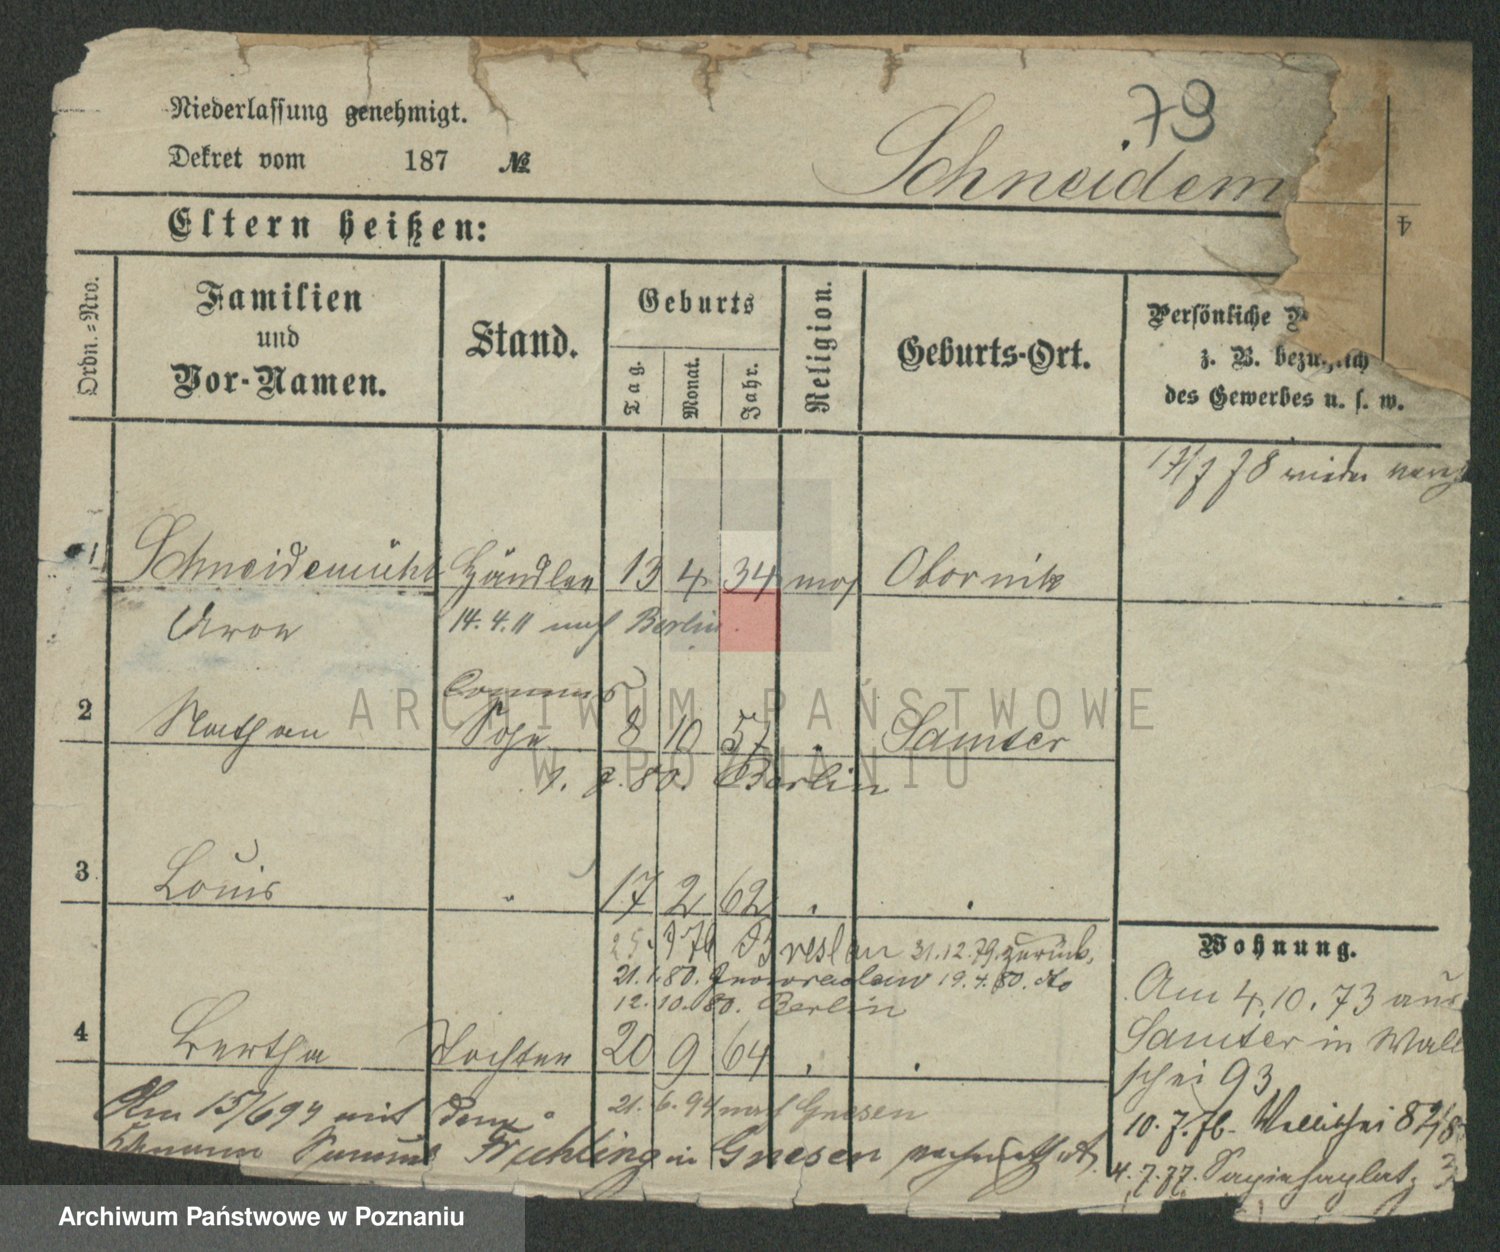 Niederlassung genehmigt.
79
Dekret vom 187 №
Schneidem
Eltern heißen:
4
Ordn.-Nro.
Familien
und
Vor-Namen.
Stand.
Geburts
Tag.
Monat.
Jahr.
Religion.
Geburts-Ort.
Persönliche
z. B. bezüglich
des Gewerbes u. s. w.
17/7 78 wieder
1 Schneidemühl Händler 13 4 34 mos Obornik
Aron 14. 4. 11 nach Berlin.
Commis
2 Nathan Sohn 8 10 57 " Samter
1. 9. 80. Berlin
3 Louis " 17 2 62 " "
Breslau 31.12.79. zurück,
21.1.80. Inowraclaw 19.4.80. dto
12.10.80. Berlin
4 Bertha Tochter 20 9 64 " "
21.6.94 nach Gnesen
Am 15/6 94 mit dem
Frühling in Gnesen
Wohnung.
Am 4.10.73 aus
Samter in Wall
schei 93
10.7.76- Wallischei
4.7.77. Sapiehaplatz
ARCHIWUM PAŃSTWOWE
W POZNANIU
Archiwum Państwowe w Poznaniu